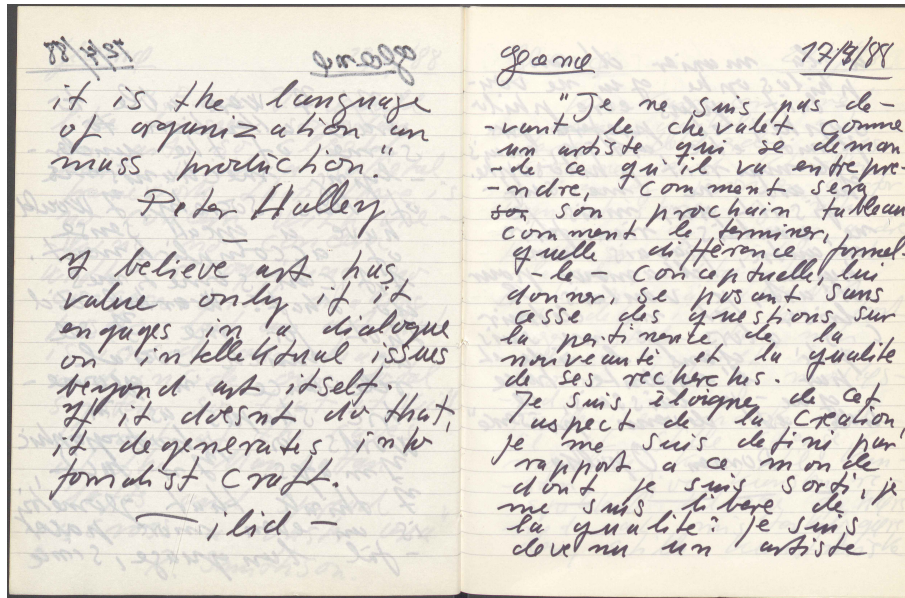 it is the language
of organization an
mass production."
Peter Halley
—
I believe art has
value only if it
engages in a dialogue
on intellektual issues
beyond art itself.
If it doesnt do that,
it degenerates into
fomalist craft.
— , lid —
17/7/88
"Je ne suis pas de-
-vant le chevalet comme
un artiste qui se deman
-de ce qu'il va entrepre-
-ndre, comment sera
son prochain tableau
comment le terminer,
quelle difference formel-
-le - conceptuelle, lui
donner, se posant sans
cesse des questions sur
la pertinence de la
nouveauté et la qualité
de ses recherches.
Je suis éloigné de cet
aspect de la creation,
je me suis defini par
rapport a ce monde
dont je suis sorti, je
me suis libere de
la qualité: je suis
devenu un artiste